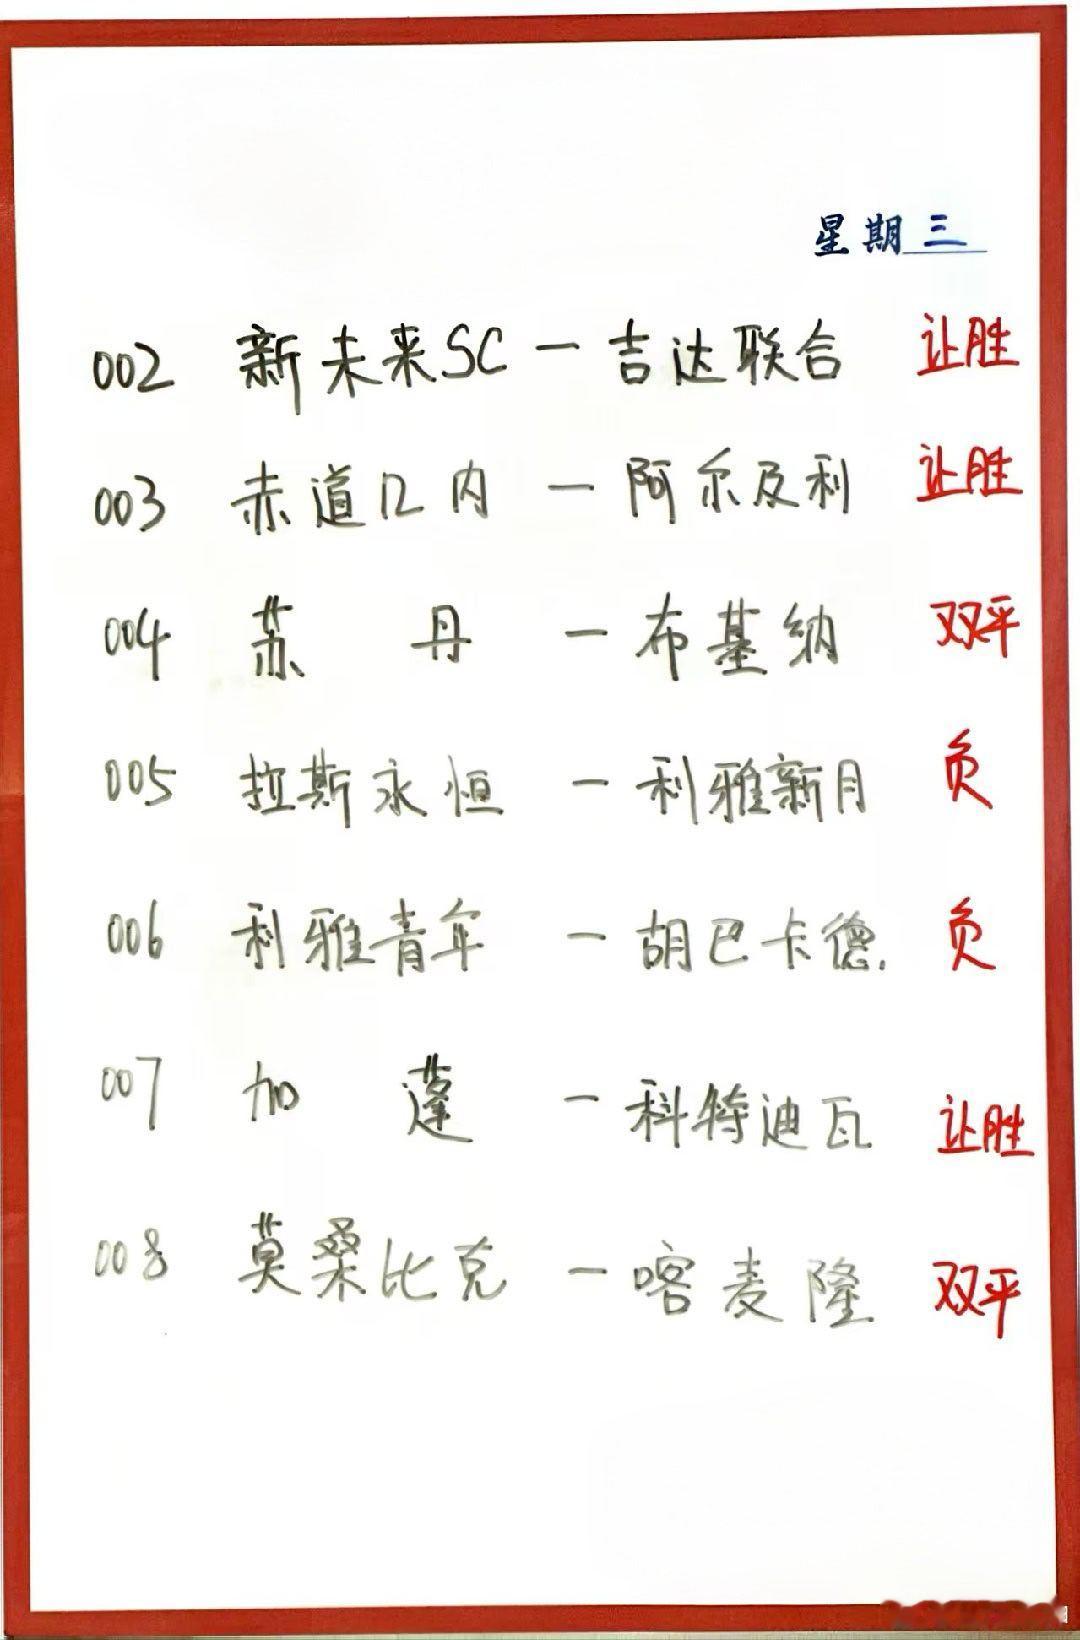 星期三
002 新未来SC — 吉达联合 让胜
003 赤道几内 — 阿尔及利 让胜
004 苏丹 — 布基纳 双平
005 拉斯永恒 — 利雅新月 负
006 利雅青年 — 胡巴卡德. 负
007 加蓬 — 科特迪瓦 让胜
008 莫桑比克 — 喀麦隆 双平